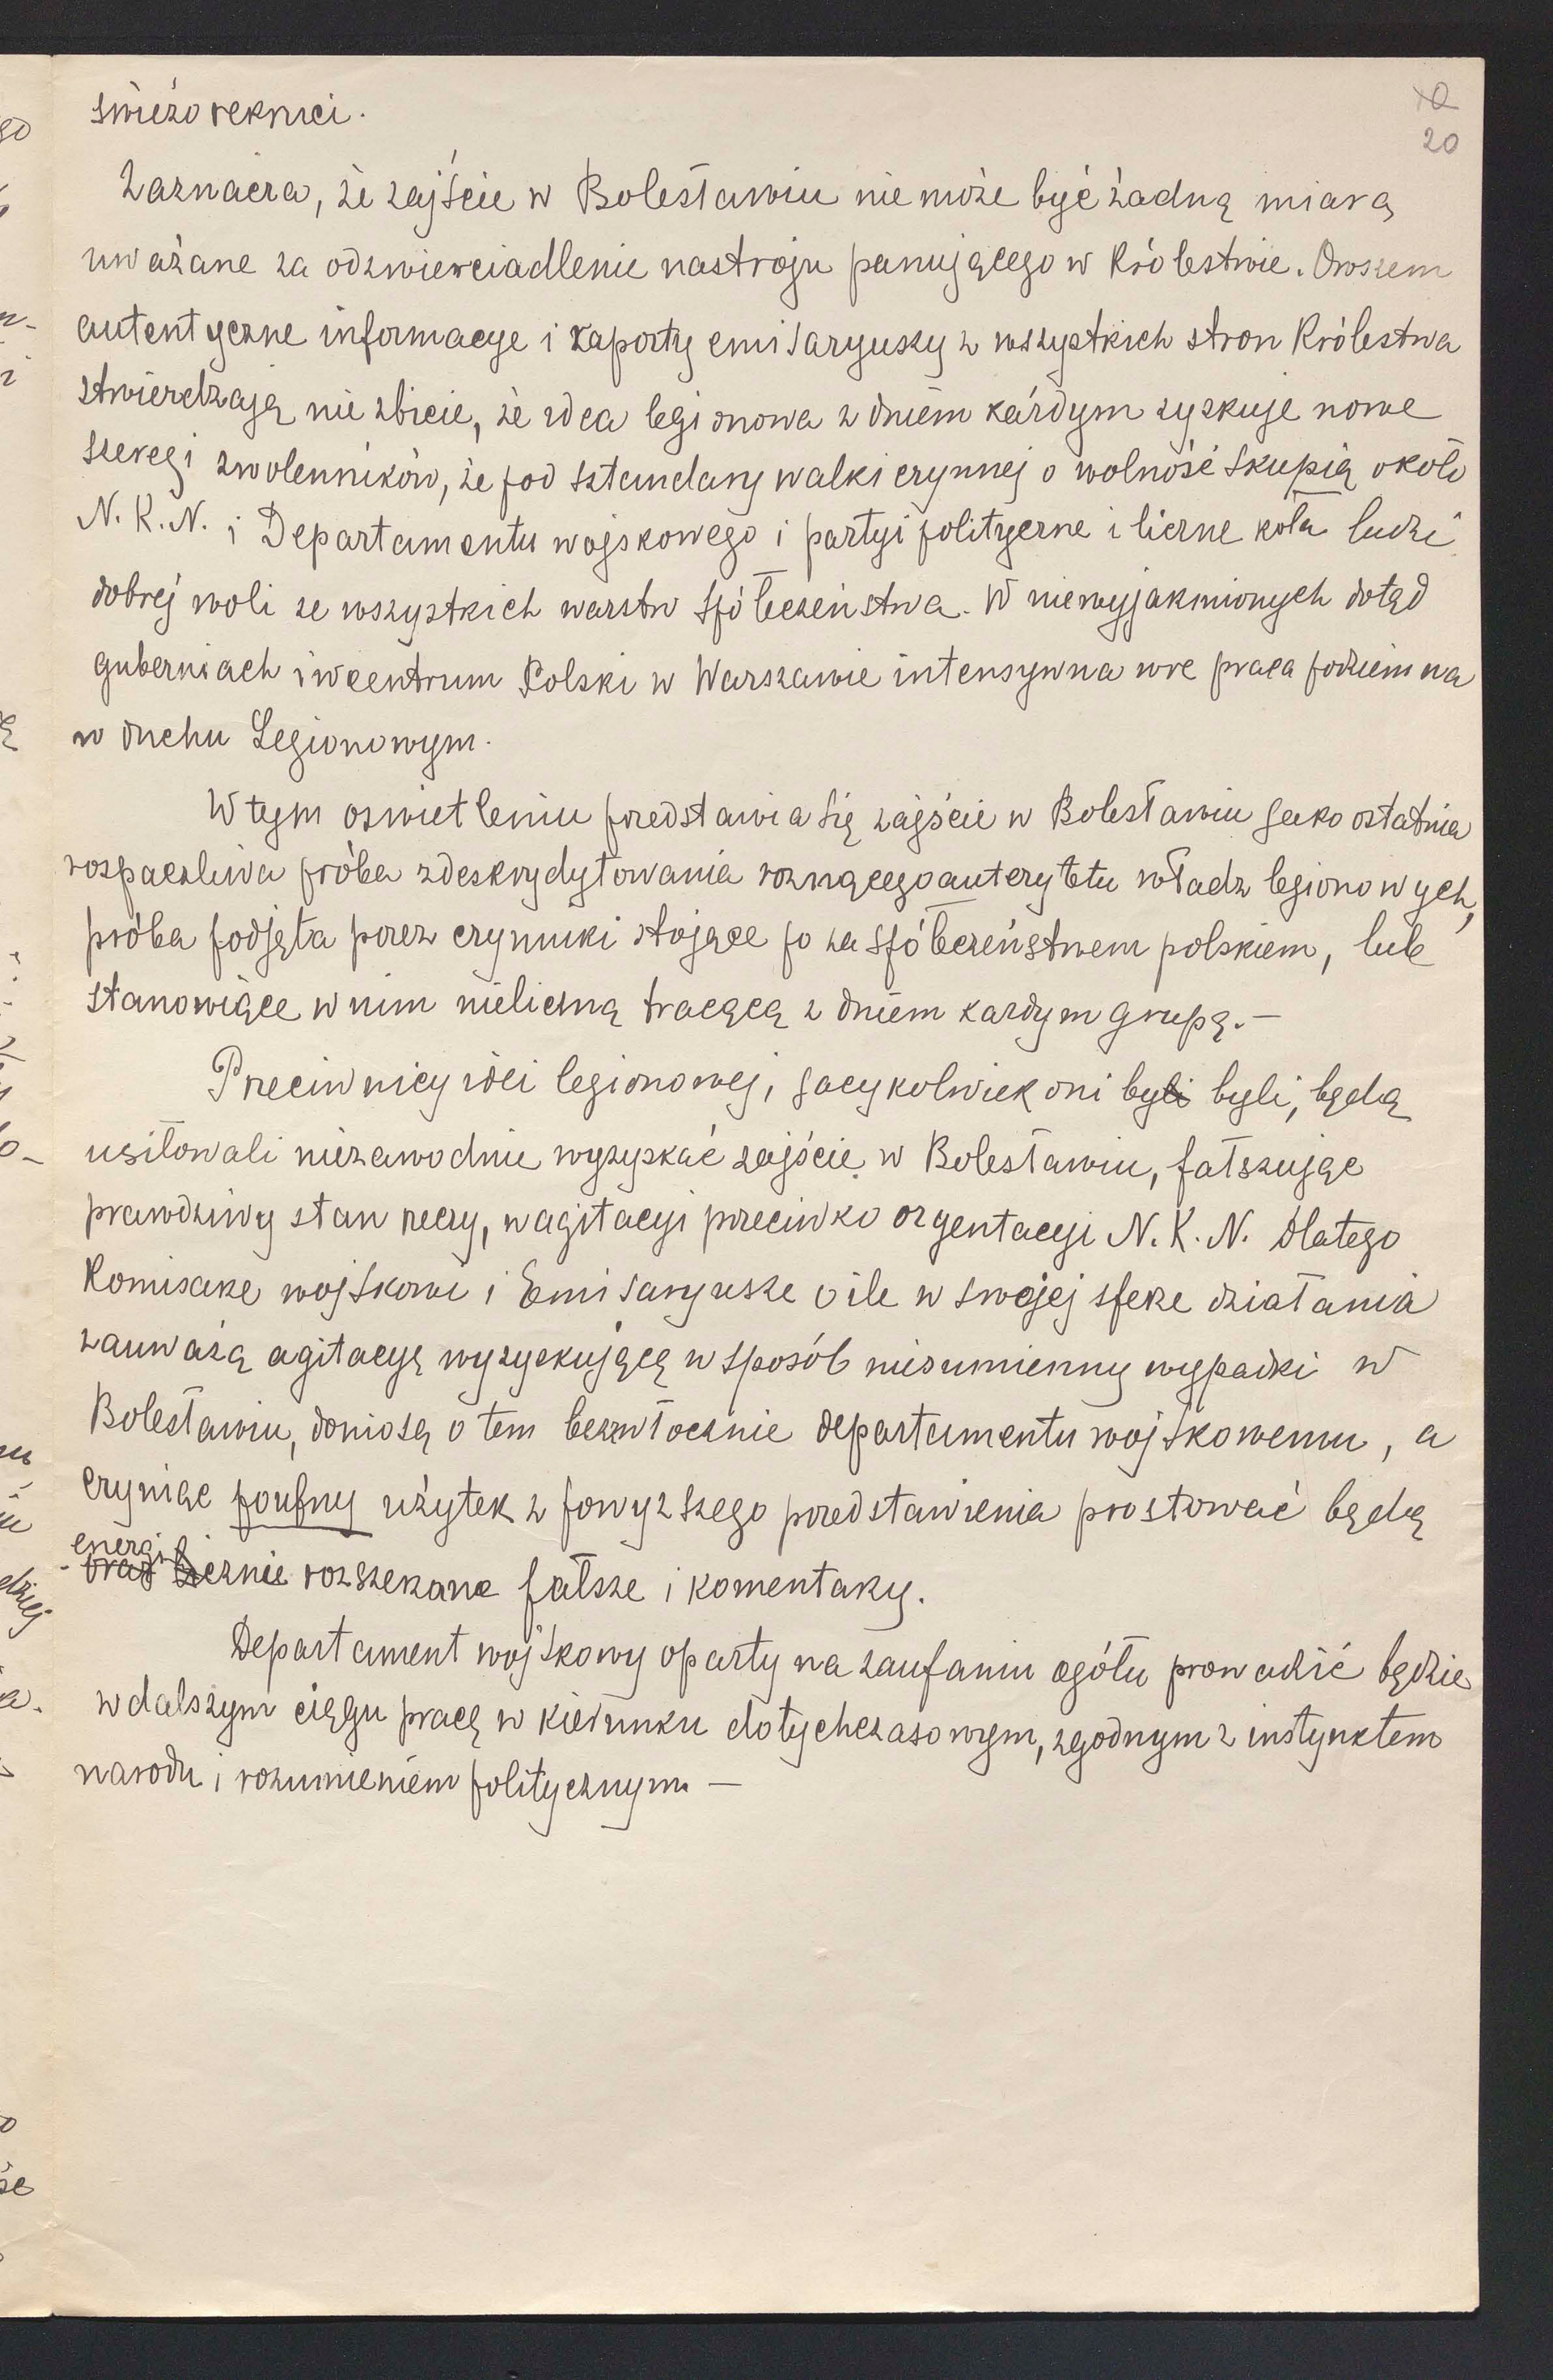 świeżo rekruci.
20
Zaznacza, że zajście w Bolesławiu nie może być żadną miarą
uważane za odzwierciadlenie nastroju panującego w Królestwie. Owszem
autentyczne informacye i raporty emisaryuszy z wszystkich stron Królestwa
stwierdzają niezbicie, że idea legionowa z dniem każdym zyskuje nowe
szeregi zwolenników, że pod sztandary walki czynnej o wolność skupią około
N. K. N. i Departamentu wojskowego i partyi polityczne i liczne koła ludzi
dobrej woli ze wszystkich warstw społeczeństwa. W niewyjaśnionych dotąd
guberniach i w centrum Polski w Warszawie intensywna wre praca podziemna
w duchu Legionowym.
W tym oświetleniu przedstawia się zajście w Bolesławiu jako ostatnia
rozpaczliwa próba zdeskrydytowania rosnącego autorytetu władz legionowych,
próba podjęta przez czynniki stojące po za społeczeństwem polskiem, lub
stanowiące w nim nieliczną tracącą z dniem każdym grupą.—
Przeciwnicy idei legionowej, jacykolwiek oni byli byli, będą
usiłowali niezawodnie wyzyskać zajście w Bolesławiu, fałszując
prawdziwy stan rzeczy, w agitacyi przeciwko oryentacyi N. K. N. Dlatego
Komisarze wojskowi i Emisaryusze o ile w swojej sferze działania
zauważą agitacyę wyzyskującą w sposób niesumienny wypadki w
Bolesławiu, doniosą o tem bezzwłocznie departamentu wojskowemu, a
czyniąc poufny użytek z powyższego przedstawienia prostować będą
energi
oraz licznie rozszerzane fałsze i komentarzy.
Departament wojskowy oparty na zaufaniu ogółu prowadzić będzie
w dalszym ciągu pracę w kierunku dotychczasowym, zgodnym z instynktem
narodu i rozumieniem politycznym. —